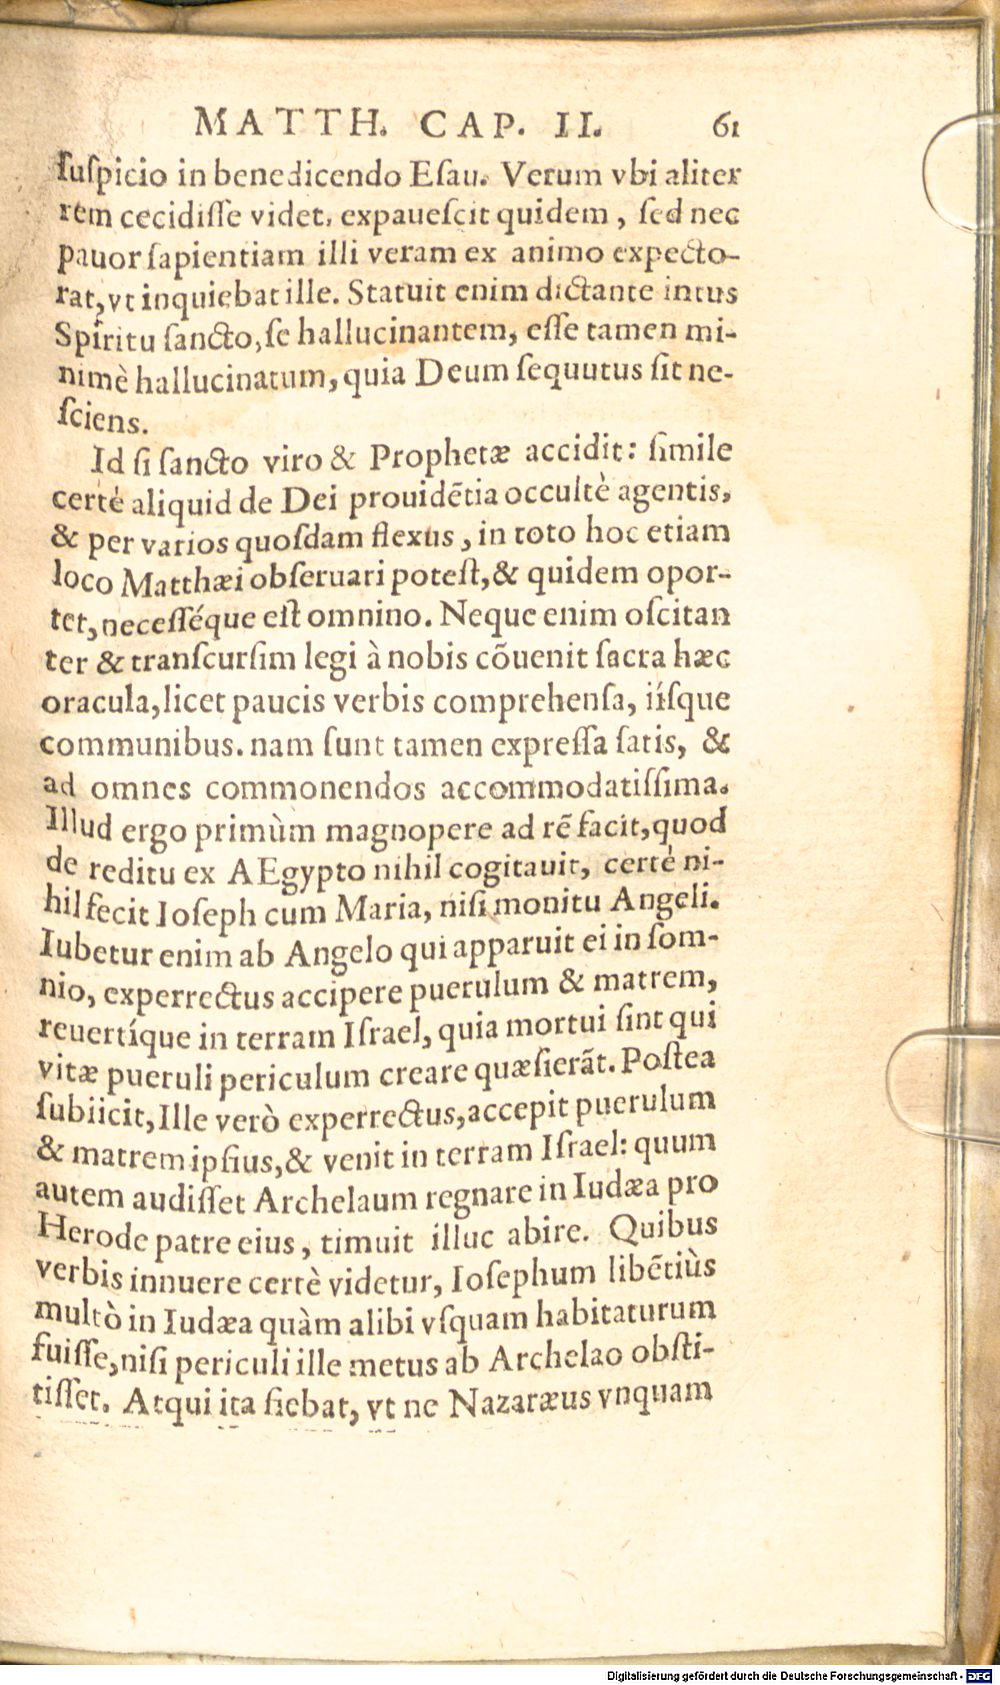 MATTH. CAP. II. 61
ſuſpicio in benedicendo Eſau. Verum vbi aliter
rem cecidiſſe videt, expaueſcit quidem, ſed nec
pauor ſapientiam illi veram ex animo expecto-
rat, vt inquiebat ille. Statuit enim dictante intus
Spiritu ſancto, ſe hallucinantem, eſſe tamen mi-
nimè hallucinatum, quia Deum ſequutus ſit ne-
ſciens.
Id ſi ſancto viro & Prophetæ accidit: ſimile
certè aliquid de Dei prouidẽtia occultè agentis,
& per varios quoſdam flexus, in toto hoc etiam
loco Matthæi obſeruari poteſt, & quidem opor-
tet, neceſſéque eſt omnino. Neque enim oſcitan
ter & tranſcurſim legi à nobis cõuenit ſacra hæc
oracula, licet paucis verbis comprehenſa, iíſque
communibus. nam ſunt tamen expreſſa ſatis, &
ad omnes commonendos accommodatiſſima.
Illud ergo primùm magnopere ad rẽ facit, quod
de reditu ex AEgypto nihil cogitauit, certè ni-
hil fecit Ioſeph cum Maria, niſi monitu Angeli.
Iubetur enim ab Angelo qui apparuit ei in ſom-
nio, experrectus accipere puerulum & matrem,
reuertíque in terram Iſrael, quia mortui ſint qui
vitæ pueruli periculum creare quæſierãt. Poſtea
ſubiicit, Ille verò experrectus, accepit puerulum
& matrem ipſius, & venit in terram Iſrael: quum
autem audiſſet Archelaum regnare in Iudæa pro
Herode patre eius, timuit illuc abire. Quibus
verbis innuere certè videtur, Ioſephum libẽtiùs
multò in Iudæa quàm alibi vſquam habitaturum
fuiſſe, niſi periculi ille metus ab Archelao obſti-
tiſſet. Atqui ita fiebat, vt ne Nazaræus vnquam
Digitalisierung gefördert durch die Deutsche Forschungsgemeinschaft - DFG